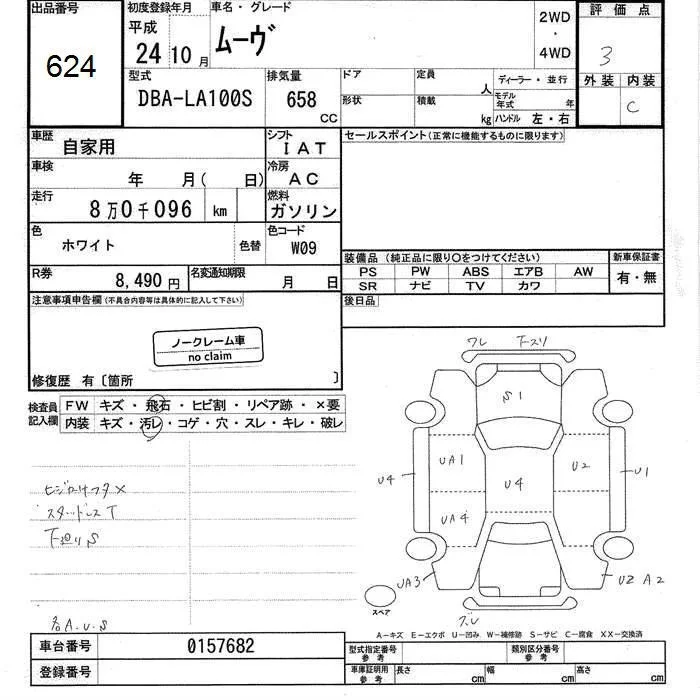 出品番号
624
初度登録年月
平成
24 10 月
車名・グレード
ムーヴ
2WD
・
4WD
評価点
3
外装 内装
C
型式
DBA-LA100S
排気量
658
CC
ドア
定員
人
形状
積載
kg
ディーラー・並行
モデル年式
年
ハンドル 左・右
車歴
自家用
シフト
IAT
車検
年 月( 日)
冷房
AC
走行
8万0千096 km
燃料
ガソリン
色
ホワイト
色替
色コード
W09
R券
8,490 円
名変通知期限
月 日
セールスポイント(正常に機能するものに限ります)
装備品(純正品に限り○をつけてください)
新車保証書
PS PW ABS エアB AW
SR ナビ TV カワ
有・無
後日品
注意事項申告欄(不具合内容等は具体的に記入して下さい)
ノークレーム車
no claim
修復歴 有〔箇所 〕
検査員記入欄
FW キズ・飛石・ヒビ割・リペア跡・×要
内装 キズ・汚レ・コゲ・穴・スレ・キレ・破レ
スタッドレス T
下廻り S
各A.U.S
ワレ 下スリ
S1
UA1
U2
U4
U4
U1
UA4
UA3
U2 A2
ズレ
スペア
A―キズ E―エクボ U―凹み W―補修跡 S―サビ C―腐食 XX―交換済
車台番号
0157682
登録番号
型式指定番号
参考
類別区分番号
参考
車庫証明用
参考
長さ cm
幅 cm
高さ cm